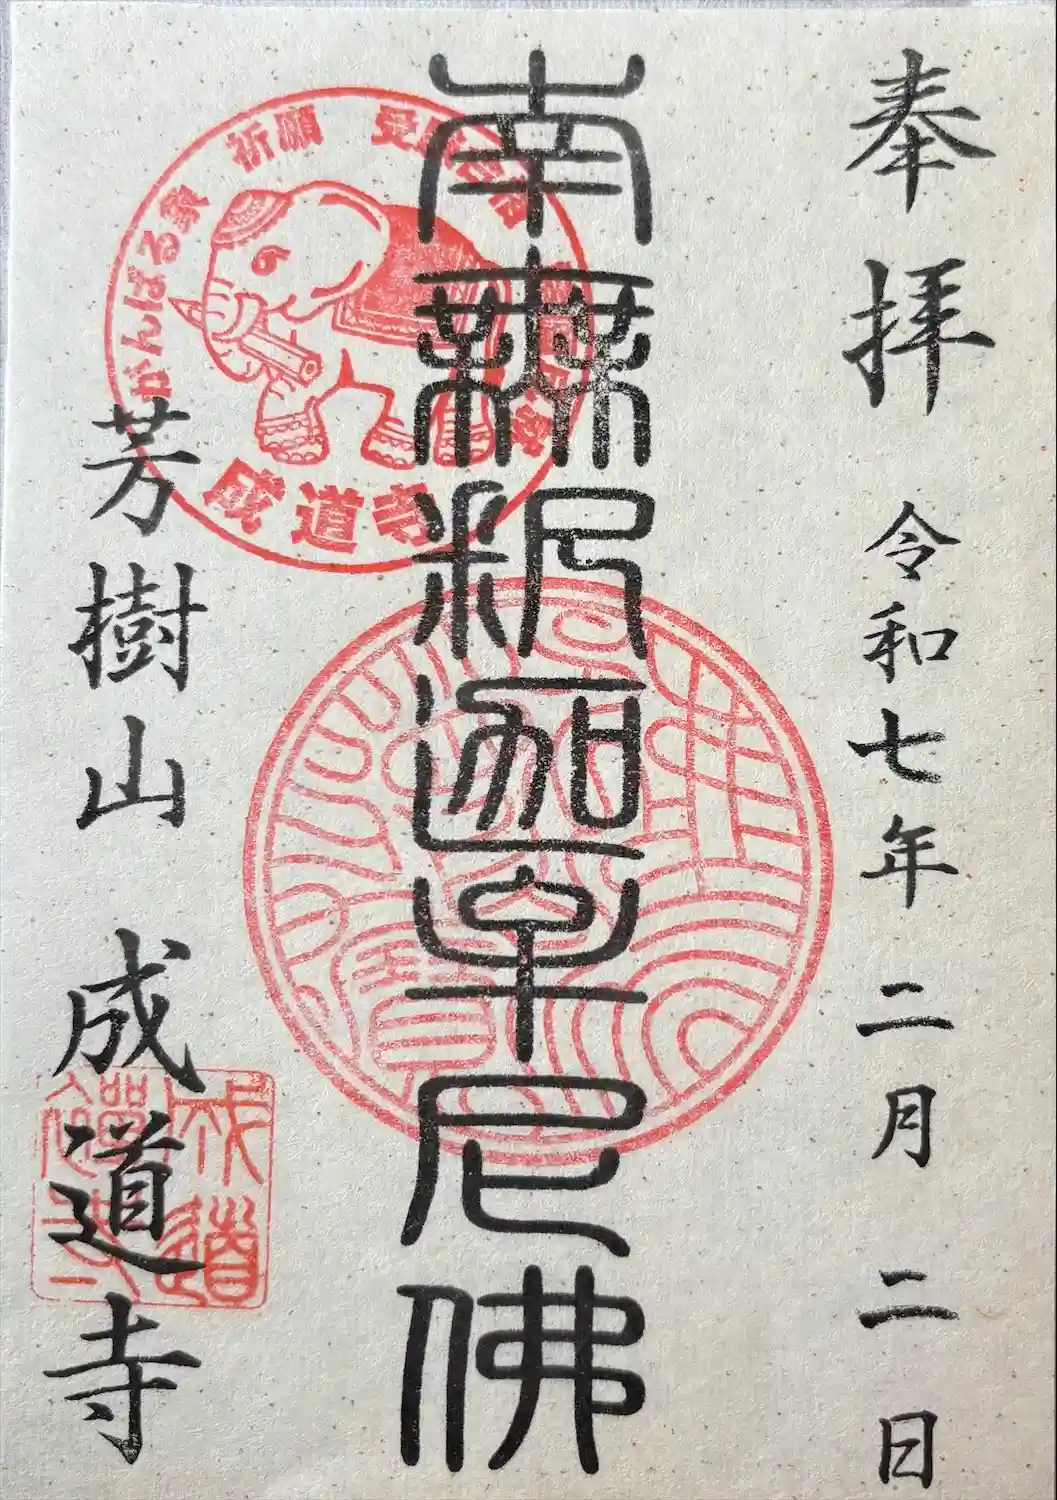 奉拝 令和七年二月二日
南無釈迦牟尼佛
がんばる象 祈願 受験合格
成道寺
芳樹山 成道寺